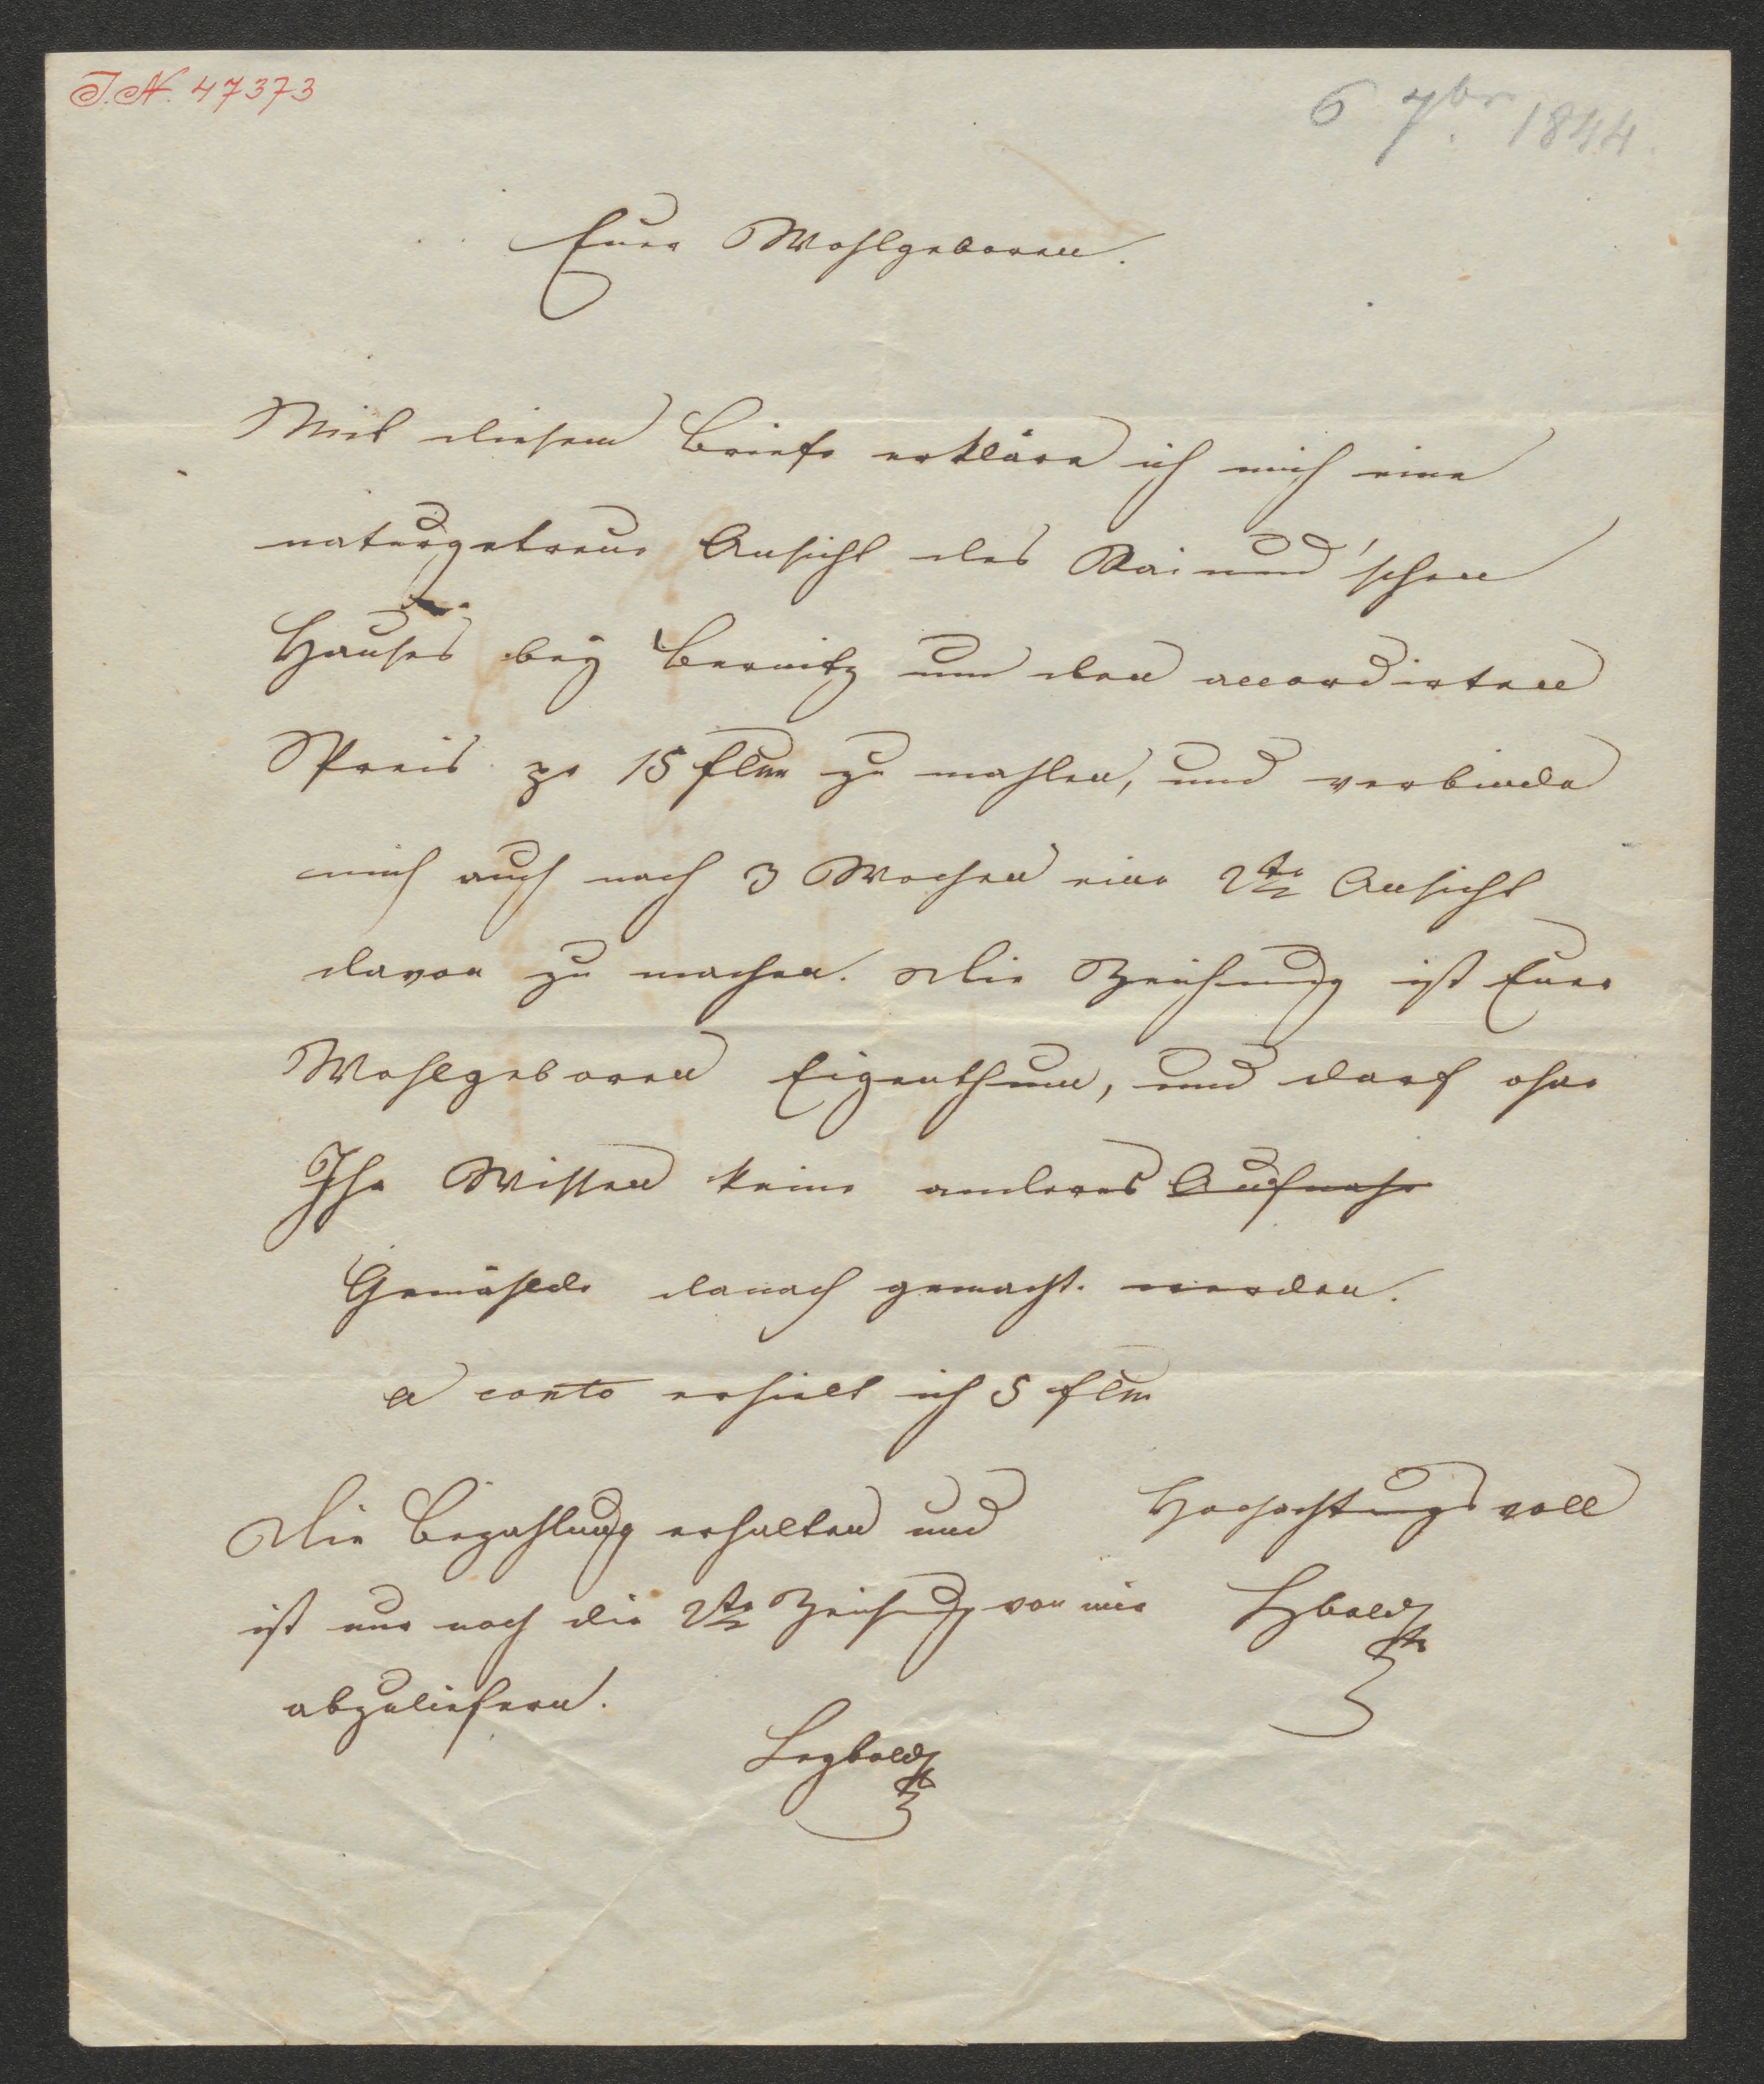 I.N. 47373
6 7br. 1844.
Euer Wohlgeboren.
Mit diesem Briefe erkläre ich mich eine
naturgetreue Ansicht des Raimund'schen
Hauses bey Bernitz um den accordirten
Preis pr 15 fl CM zu mahlen, und verbinde
mich auch nach 3 Wochen eine 2te Ansicht
davon zu machen. Die Zeichnung ist Euer
Wohlgeboren Eigenthum, und darf ohne
Ihr Wissen keine anderes Aufnahe
Gemählde danach gemacht werden.
a conto erhielt ich 5 fl CM
Hochachtungsvoll
Die Bezahlung erhalten und
ist nur noch die 2te Zeichnung von mir
abzuliefern.
Leybold